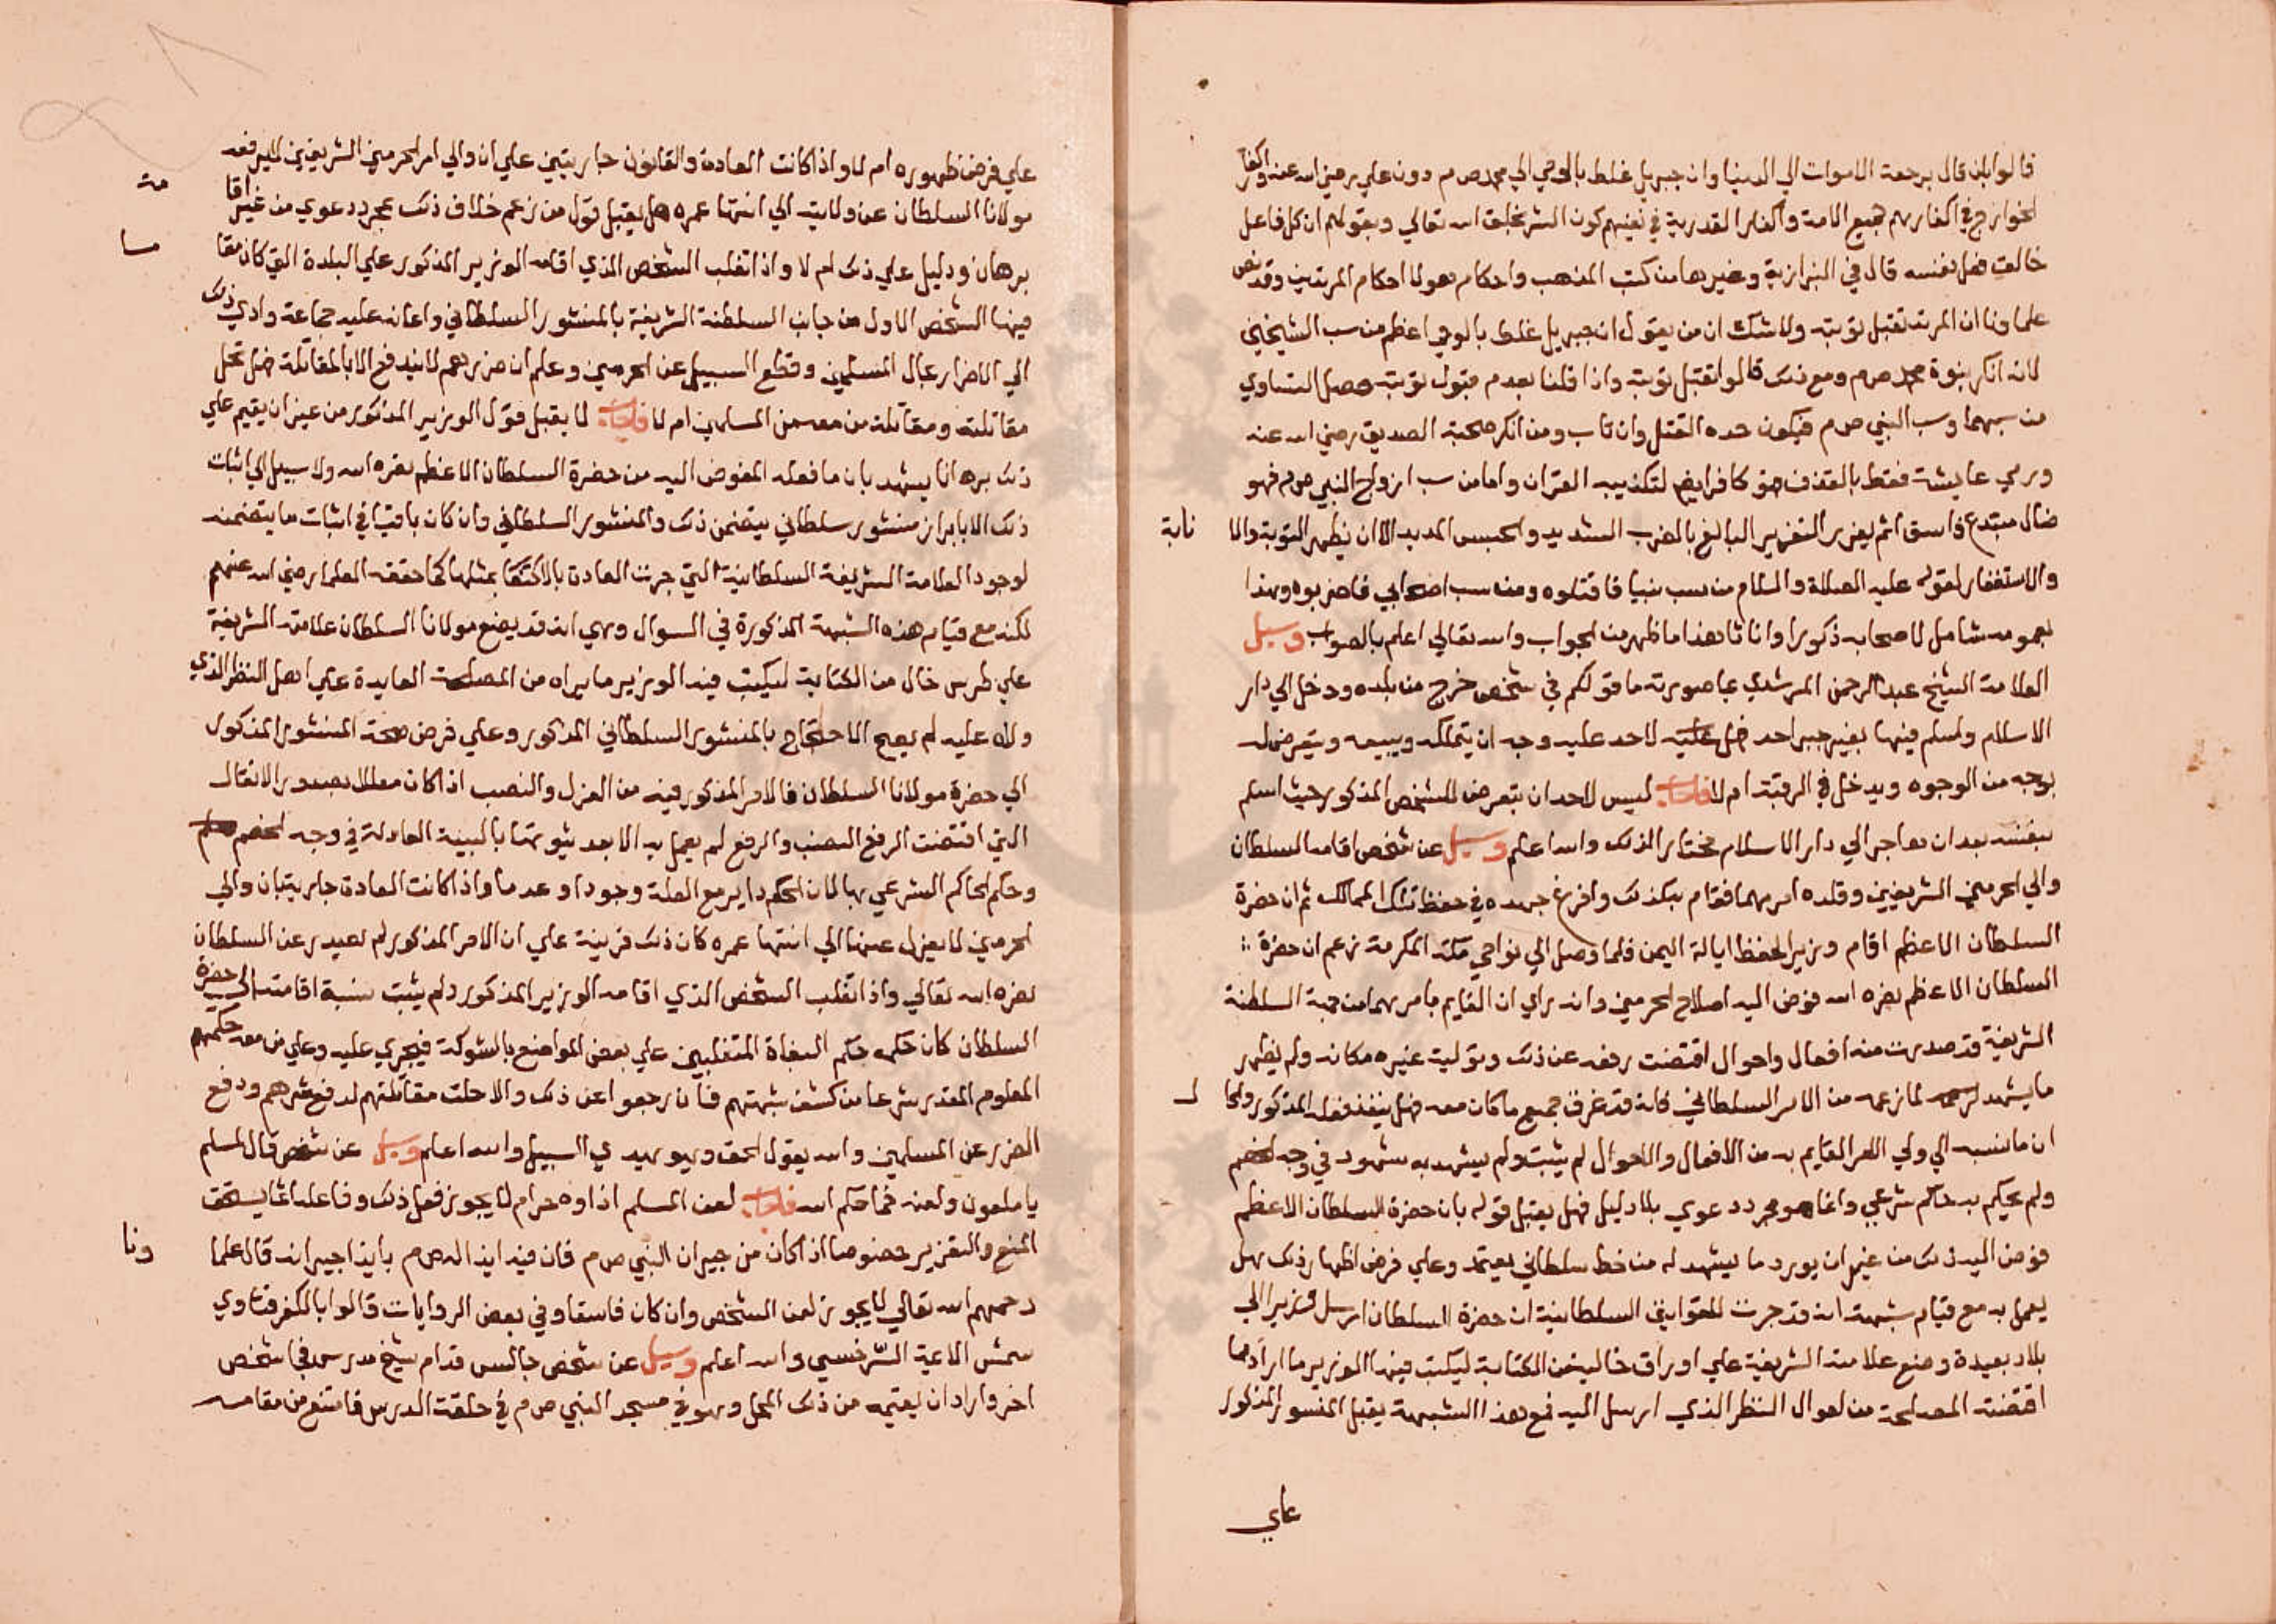 قالوا بان قال برجعة الاموات الي الدنيا وان جبريل غلط بالوحي الي محمد صم دون علي رضي اسه عنه واكفار
الخوارج في اكفارهم جميع الامة واكفار القدرية في نفيهم كون الشر بخلق اسه تعالي وبقولهم ان كل فاعل
خالق فعل نفسه قال في البزازية وغيرها من كتب المذهب واحكام هولا احكام المرتدين وقد نص
علماونا ان المرتد تقبل توبته ولا شك ان من يقول ان جبريل غلط بالوحي اعظم من سب الشيخين
لانه انكر بنوة محمد صم ومع ذلك قالوا تقبل توبته واذا قلنا بعدم قبول توبته حصل التساوي
من سبهما وسب النبي صم فيكون حده القتل وان تاب ومن انكر صحبة الصديق رضي اسه عنه
ورمي عايشة فقط بالقذف فهو كافر ايضا لتكذيبه القران واما من سب ازواج النبي صم فهو
ضال مبتدع فاسق اثم يعزر التعزير البالغ بالضرب الشديد والحبس المديد الا ان يظهر التوبة والا نابة
والاستغفار لقوله عليه الصلاة والسلام من سب نبيا فاقتلوه ومن سب اصحابي فاضربوه وهذا
بعمومه شامل لاصحابه ذكورا واناثا هذا ما ظهر من الجواب واسه تعالي اعلم بالصواب وسيل
العلامة الشيخ عبد الرحمن المرشدي بما صورته ما قولكم في شخص خرج من بلده ودخل الي دار
الاسلام واسلم فيها بغير جبر احد فهل عليه لاحد عليه وجه ان يتملكه ويبيعه ويتعرض له
بوجه من الوجوه ويدخل في الرقبة ام لا فاجاب ليس لاحد ان يتعرض للشخص المذكور حيث اسلم
بنفسه بعد ان هاجر الي دار الاسلام مختارا لذلك واسه اعلم وسيل عن شخص اقامه السلطان
والي الحرمين الشريفين وقلده امرهما فقام بكذلك وافرغ جهده في حفظ تلك الممالك ثم ان حضرة
السلطان الاعظم اقام وزيرا لحفظ ايالة اليمن فلما وصل الي نواحي مكة المكرمة زعم ان حضرة
السلطان الاعظم نصره اسه فوض اليه اصلاح الحرمين وانه راي ان القايم بامرهما من جهة السلطنة
الشريفة قد صدرت منه افعال واحوال اقتضت رفعه عن ذلك وتولية غيره مكانه ولم يظهر
ما يشهد لما زعمه من الامر السلطاني كانه قد غرق جميع ما كان معه فهل ينفذ فعله المذكور والحا ل
ان ما نسبه الي ولي الامر القايم به من الافعال والاحوال لم يثبت ولم يشهد به شهود في وجه الخصم
ولم يحكم به حاكم شرعي وانما هو مجرد دعوي بلا دليل فهل يقبل قوله بان حضرة السلطان الاعظم
فوض اليه ذلك من غير ان يورد ما يشهد له من خط سلطاني يعتمد وعلي فرض اظهار ذلك هل
يعمل به مع قيام شبهة انه قد جرت القوانين السلطانية ان حضرة السلطان ارسل وزيرا الي
بلاد بعيدة وضع علامته الشريفة علي اوراق خالية من الكتابة ليكتب فيها الوزير ما اراد مما
اقتضته المصلحة من احوال النظر الذي ارسل اليه فمع هذا الشبهة يقبل المنشور المذكور
علي
علي فرض ظهوره ام لا واذا كانت العادة والقانون جاريتين علي ان والي امر الحرمين الشريفين لا يرفعه
مولانا السلطان عن ولايته الي انتها عمره هل يقبل قول من زعم خلاف ذلك بمجرد دعوي من غير اقا مة
برهان ودليل علي ذلك ام لا واذا تغلب الشخص الذي اقامه الوزير المذكور علي البلدة التي كان مقا ما
فيها الشخص الاول من جانب السلطنة الشريفة بالمنشور السلطاني واعانه عليه جماعة وادي ذلك
الي الاضرار بمال المسلمين وقطع السبيل عن الحرمين وعلم ان ضررهم لا يندفع الا بالمقاتلة فهل تحل
مقاتلته ومقاتلة من معه من المسلمين ام لا فاجاب لا يقبل قول الوزير المذكور من غير ان يقيم علي
ذلك برهانا يشهد بان ما فعله المفوض اليه من حضرة السلطان الاعظم نصره اسه ولا سبيل الي اثبات
ذلك الا بابراز منشور سلطاني يتضمن ذلك والمنشور السلطاني وان كان باقيا في اثبات ما يتضمنه
لوجود العلامة الشريفة السلطانية التي جرت العادة بالاكتفا بمثلها كما حققه العلما رضي اسه عنهم
لكنه مع قيام هذه الشبهة المذكورة في السوال وهي انه قد يضع مولانا السلطان علامته الشريفة
علي طرس خال من الكتابة ليكتب فيه الوزير ما يراه من المصلحة العايدة علي اهل النظر الذي
ولاه عليه لم يصح الاحتجاج بالمنشور السلطاني المذكور وعلي فرض صحة المنشور المذكور
الي حضرة مولانا السلطان فالامر المذكور فيه من العزل والنصب اذا كان معللا بصدور الافعال
التي اقتضت الرفع النصب والرفع لم يعمل به الا بعد ثبوتها بالبينة العادلة في وجه الخصم
وحكم الحاكم الشرعي بها لان الحكم داير مع العلة وجودا وعدما واذا كانت العادة جارية بان والي
الحرمين لا يعزل عنها الي انتها عمره كان ذلك قرينة علي ان الامر المذكور لم يصدر عن السلطان
نصره اسه تعالي واذا تغلب الشخص الذي اقامه الوزير المذكور ولم يثبت نسبة اقامته الي حضرة
السلطان كان حكمه حكم البغاة المتغلبين علي بعض المواضع بالشوكة فيجري عليه وعلي من معه حكمهم
المعلوم المقدر شرعا من كشف شبهتهم فان رجعوا عن ذلك والا حلت مقاتلتهم لدفع شرهم ودفع
الضرر عن المسلمين واسه يقول الحق وهو يهدي السبيل واسه اعلم وسيل عن شخص قال لمسلم
يا ملعون ولعنه فما حكم اسه فاجاب لعن المسلم اذاوه حرام لا يجوز فعل ذلك وفاعله اثما يستحق
المنع والتعزير خصوصا اذا كان من جيران النبي صم فان فيه ايذا له صم بايذا جيرانه قال علما ونا
رحمهم اسه تعالي لا يجوز لعن الشخص وان كان فاسقا وفي بعض الروايات قالوا بالكفر فتاوي
شمس الايمة السرخسي واسه اعلم وسيل عن شخص جالس قدام شيخ مدرس فجا شخص
اخر واراد ان يقيمه من ذلك المحل وهو في مسجد النبي صم في حلقة الدرس فامتنع من مقامه